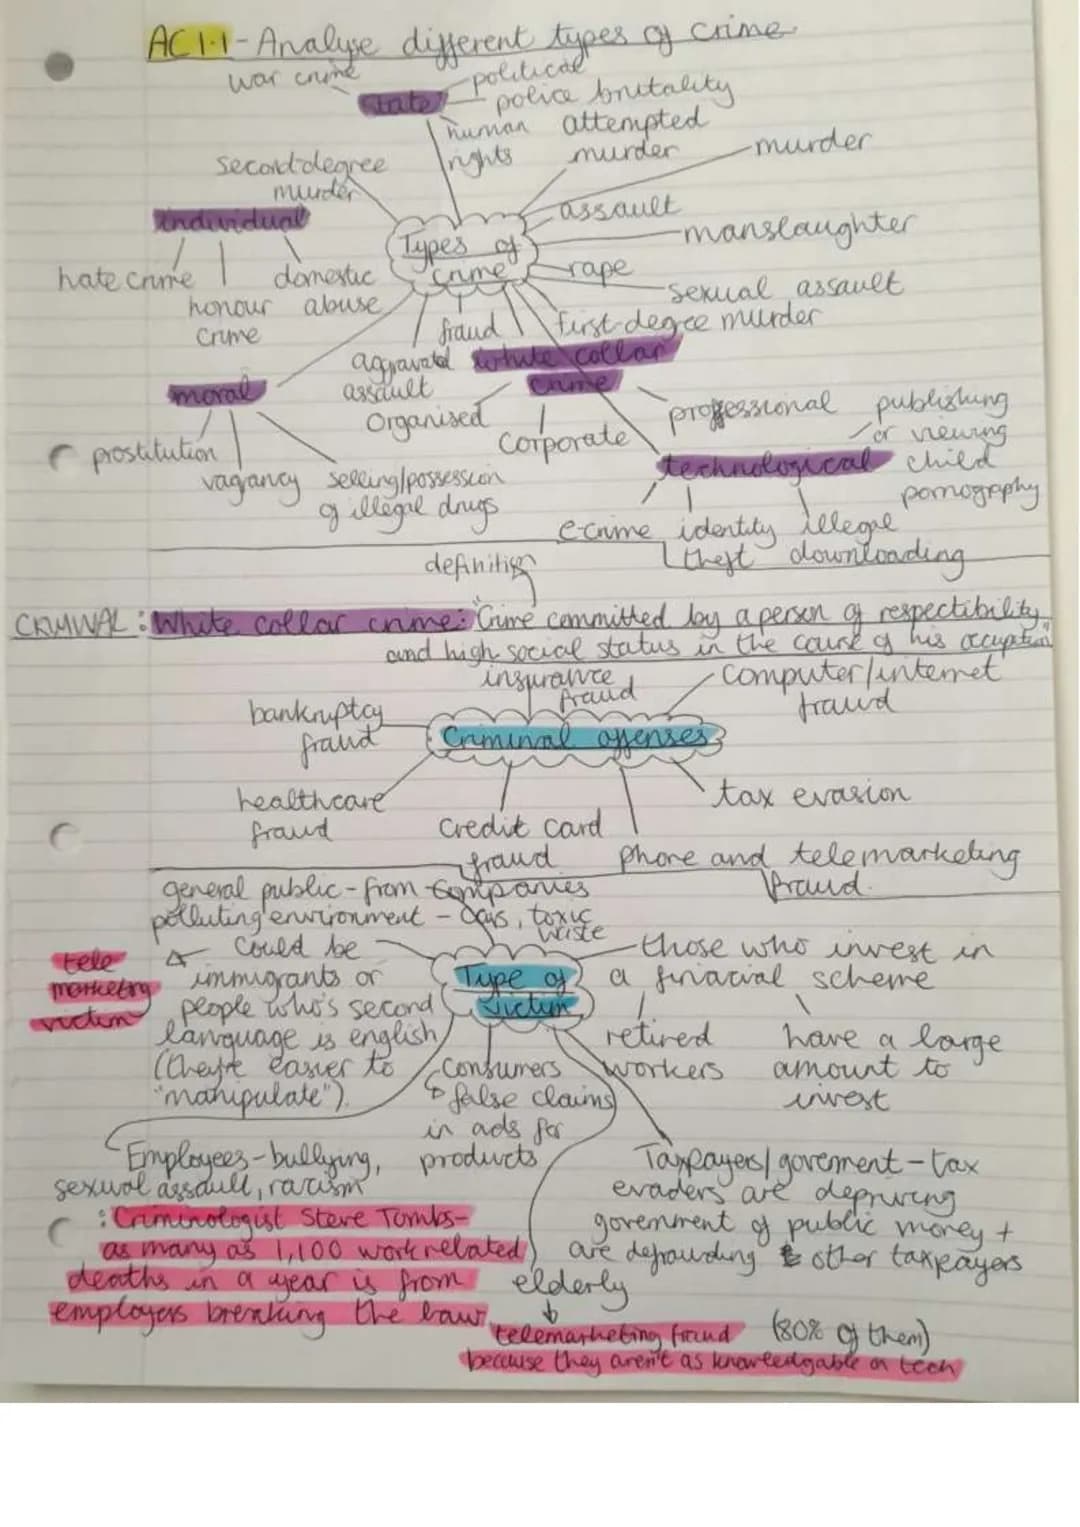 AC 1.1 - Analyse different types of crime
war crime
political
state
police brutality
human rights
attempted murder
murder
second-degree murder
assault
individual
manslaughter
Types of crime
rape
hate crime
honour crime
domestic abuse
sexual assault
fraud
first-degree murder
aggravated assault
white collar crime
moral
Organised
Corporate
professional
publishing or viewing child pornography
prostitution
vagancy
selling/possession of illegal drugs
technological
e-crime
identity theft
illegal downloading
definition
CRIMINAL : White collar crime: "Crime committed by a person of respectibility
and high social status in the course of his occuption"
insurance fraud
computer/internet fraud
bankruptcy fraud
Criminal offenses
healthcare fraud
credit card fraud
tax evasion
phone and telemarketing fraud.
general public - from companies
polluting environment - cars, toxic waste
tele marketing victim
could be
immigrants or
people who's second
language is english
(they're easier to
"manipulate").
Type of victim
those who invest in
a finacial scheme
retired workers
have a large
amount to
invest
Consumers
false claims
in ads for
products
Employees - bullying,
sexual assault, racism
: Criminologist Steve Tombs-
as many as 1,100 work related
deaths in a year is from
employers breaking the law
Taxpayers/goverment - tax
evaders are depriving
government of public money +
are defrauding other taxpayers
elderly
telemarketing fraud (80% of them)
because they aren't as knowledgable on tech